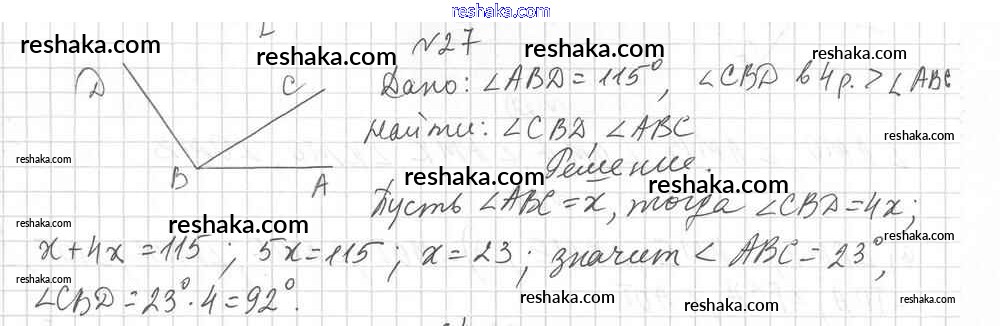 reshaka.com
№27
reshaka.com reshaka.com reshaka.com
Дано: ∠ABD = 115°, ∠CBD в 4 р. > ∠ABC
D C
Найти: ∠CBD, ∠ABC
reshaka.com reshaka.com
Решение.
B A
reshaka.com reshaka.com reshaka.com
Пусть ∠ABC = x, тогда ∠CBD = 4x;
reshaka.com reshaka.com
x + 4x = 115; 5x = 115; x = 23; значит ∠ABC = 23°,
reshaka.com
∠CBD = 23° · 4 = 92°.
reshaka.com reshaka.com
reshaka.com